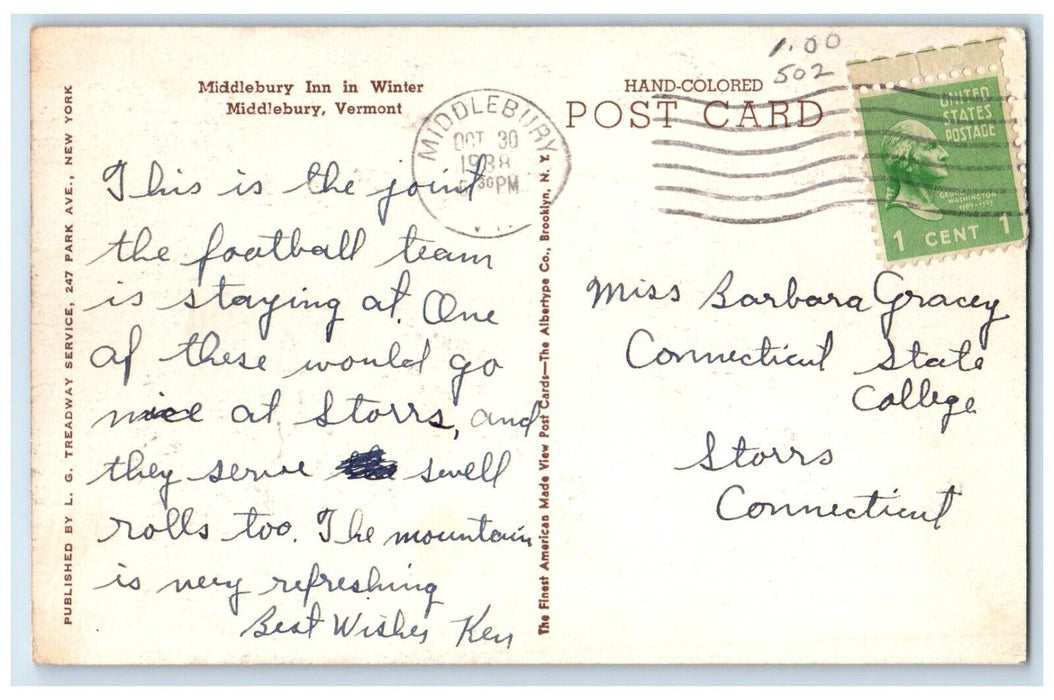 1.00
502
Middlebury Inn in Winter
Middlebury, Vermont
HAND-COLORED
POST CARD
MIDDLEBURY
OCT 30
1938
30 PM
UNITED
STATES
POSTAGE
GEORGE
WASHINGTON
1789-1797
1 CENT 1
This is the joint
the football team
is staying at. One
of these would go
nice at Storrs, and
they serve swell
rolls too. The mountain
is very refreshing
Best Wishes Ken
Miss Barbara Gracey
Connecticut State
College
Storrs
Connecticut
PUBLISHED BY L. G. TREADWAY SERVICE, 247 PARK AVE., NEW YORK
The Finest American Made View Post Cards—The Albertype Co., Brooklyn, N. Y.